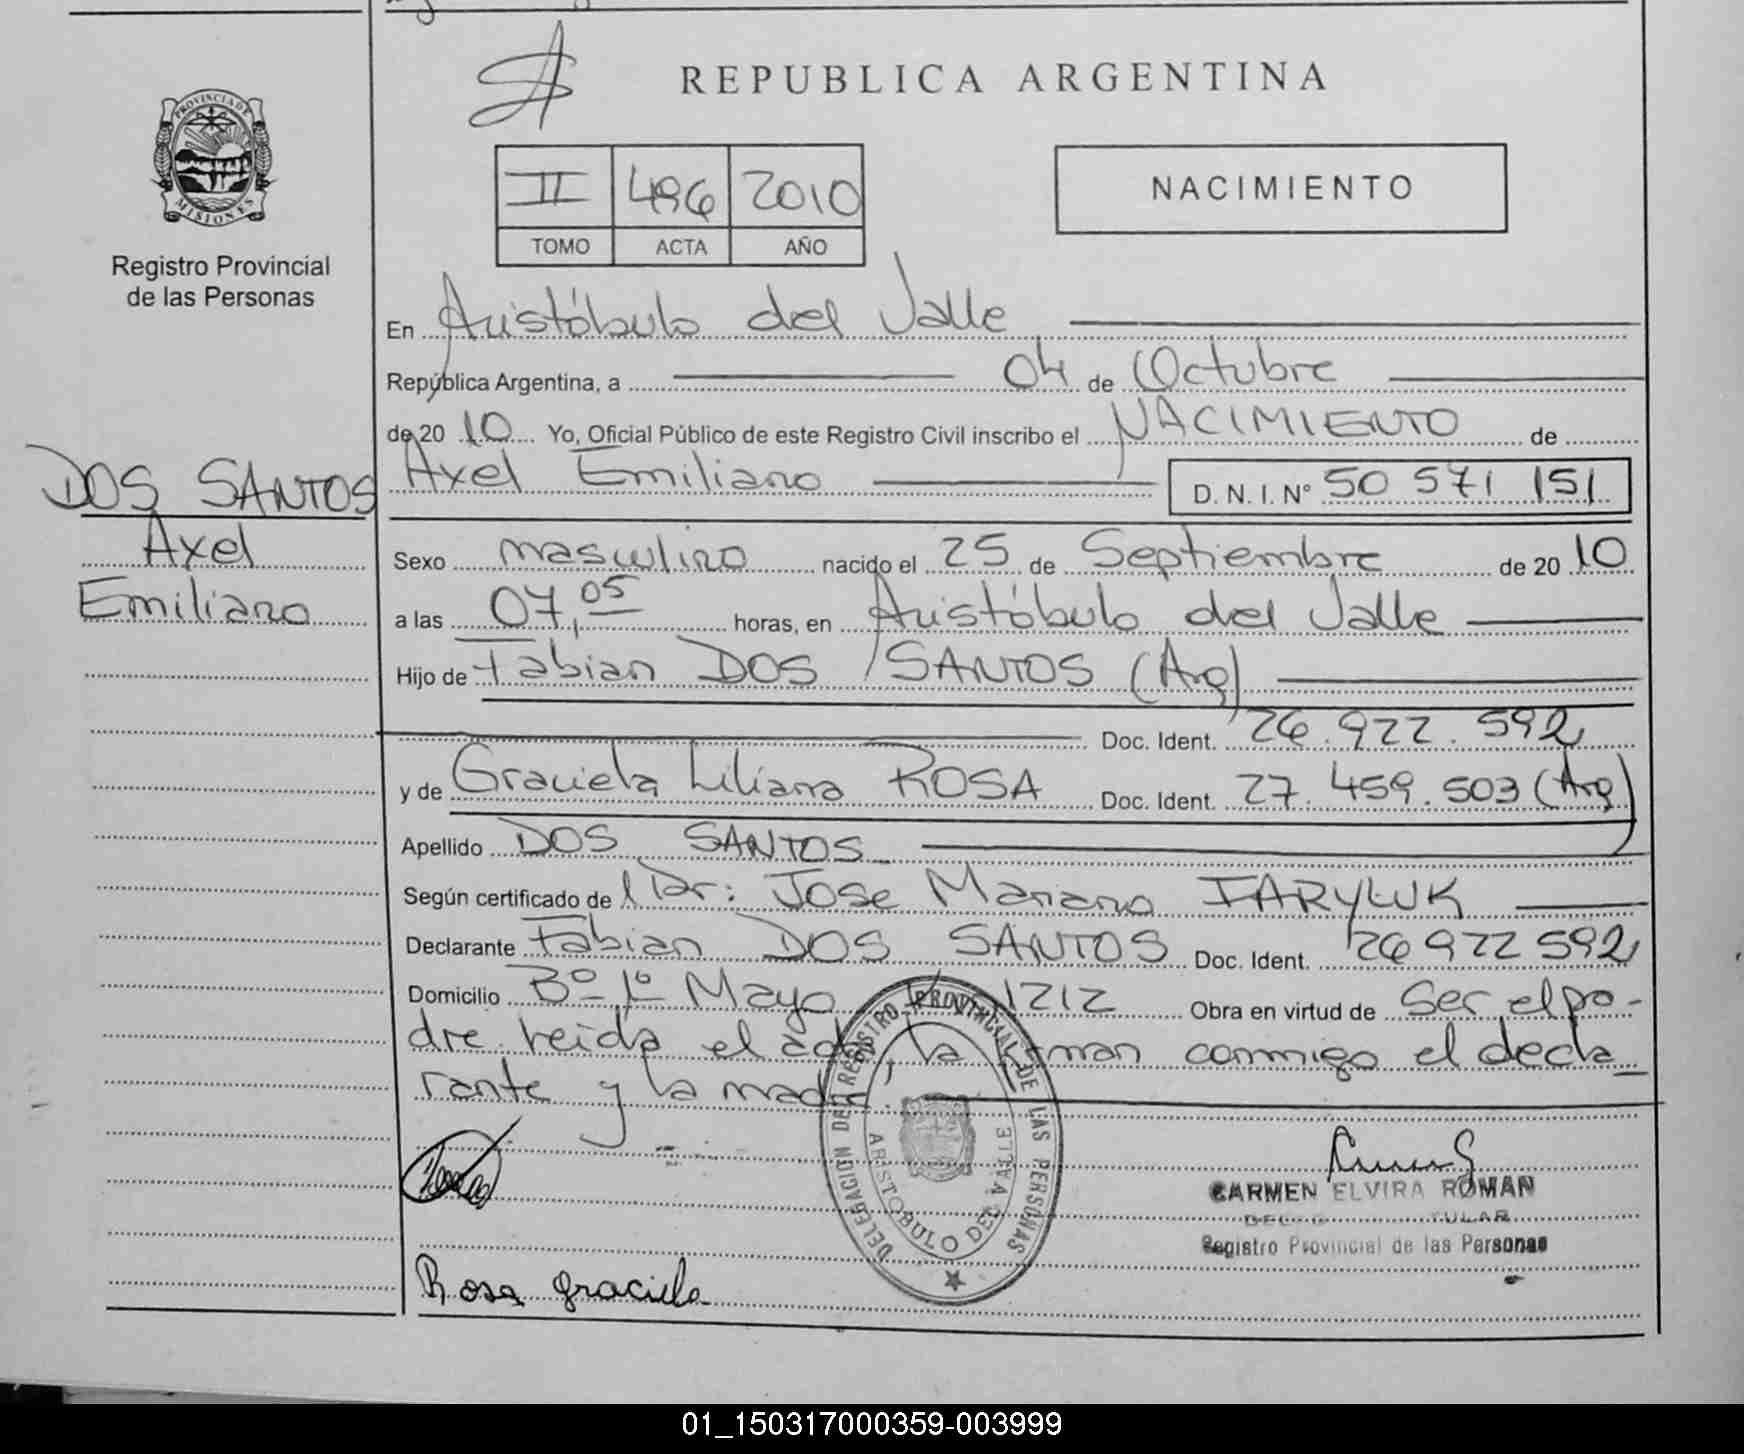 PROVINCIA DE
MISIONES
Registro Provincial
de las Personas
DOS SANTOS
Axel
Emiliano
REPUBLICA ARGENTINA
II 496 2010
TOMO ACTA AÑO
NACIMIENTO
En Aristóbulo del Valle
República Argentina, a 04 de Octubre
de 20 10 Yo, Oficial Público de este Registro Civil inscribo el NACIMIENTO de
Axel Emiliano D.N.I. Nº 50 571 151
Sexo masculino nacido el 25 de Septiembre de 20 10
a las 07,05 horas, en Aristóbulo del Valle
Hijo de Fabian DOS SANTOS (Arg)
Doc. Ident. 26.922.592
y de Graciela Liliana ROSA Doc. Ident. 27.459.503 (Arg)
Apellido DOS SANTOS
Según certificado de Dr: Jose Mariano IARYLUK
Declarante Fabian DOS SANTOS Doc. Ident. 26 922 592
Domicilio Bº 1º Mayo 1212 Obra en virtud de Ser el pa-
dre leida el acta, la firman conmigo el decla
rante y la madre.
DELEGACION DE REGISTRO PROVINCIAL DE LAS PERSONAS
ARISTOBULO DEL VALLE
CARMEN ELVIRA ROMAN
Registro Provincial de las Personas
Rosa graciela
01_150317000359-003999